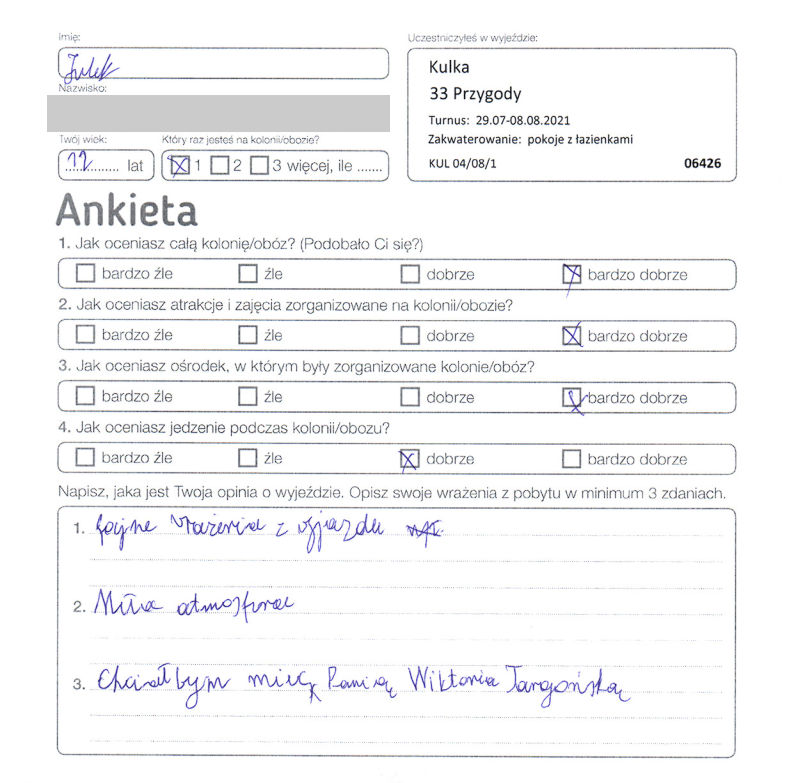 Imię:
Julek
Nazwisko:
Twój wiek:
Który raz jesteś na kolonii/obozie?
11 lat
1 2 3 więcej, ile .......
Uczestniczyłeś w wyjeździe:
Kulka
33 Przygody
Turnus: 29.07-08.08.2021
Zakwaterowanie: pokoje z łazienkami
KUL 04/08/1 06426
Ankieta
1. Jak oceniasz całą kolonię/obóz? (Podobało Ci się?)
bardzo źle źle dobrze bardzo dobrze
2. Jak oceniasz atrakcje i zajęcia zorganizowane na kolonii/obozie?
bardzo źle źle dobrze bardzo dobrze
3. Jak oceniasz ośrodek, w którym były zorganizowane kolonie/obóz?
bardzo źle źle dobrze bardzo dobrze
4. Jak oceniasz jedzenie podczas kolonii/obozu?
bardzo źle źle dobrze bardzo dobrze
Napisz, jaka jest Twoja opinia o wyjeździe. Opisz swoje wrażenia z pobytu w minimum 3 zdaniach.
1. fajne wrażenia z wyjazdu
2. Miła atmosfera
3. Chciałbym mieć Panią Wiktoria Jargońską